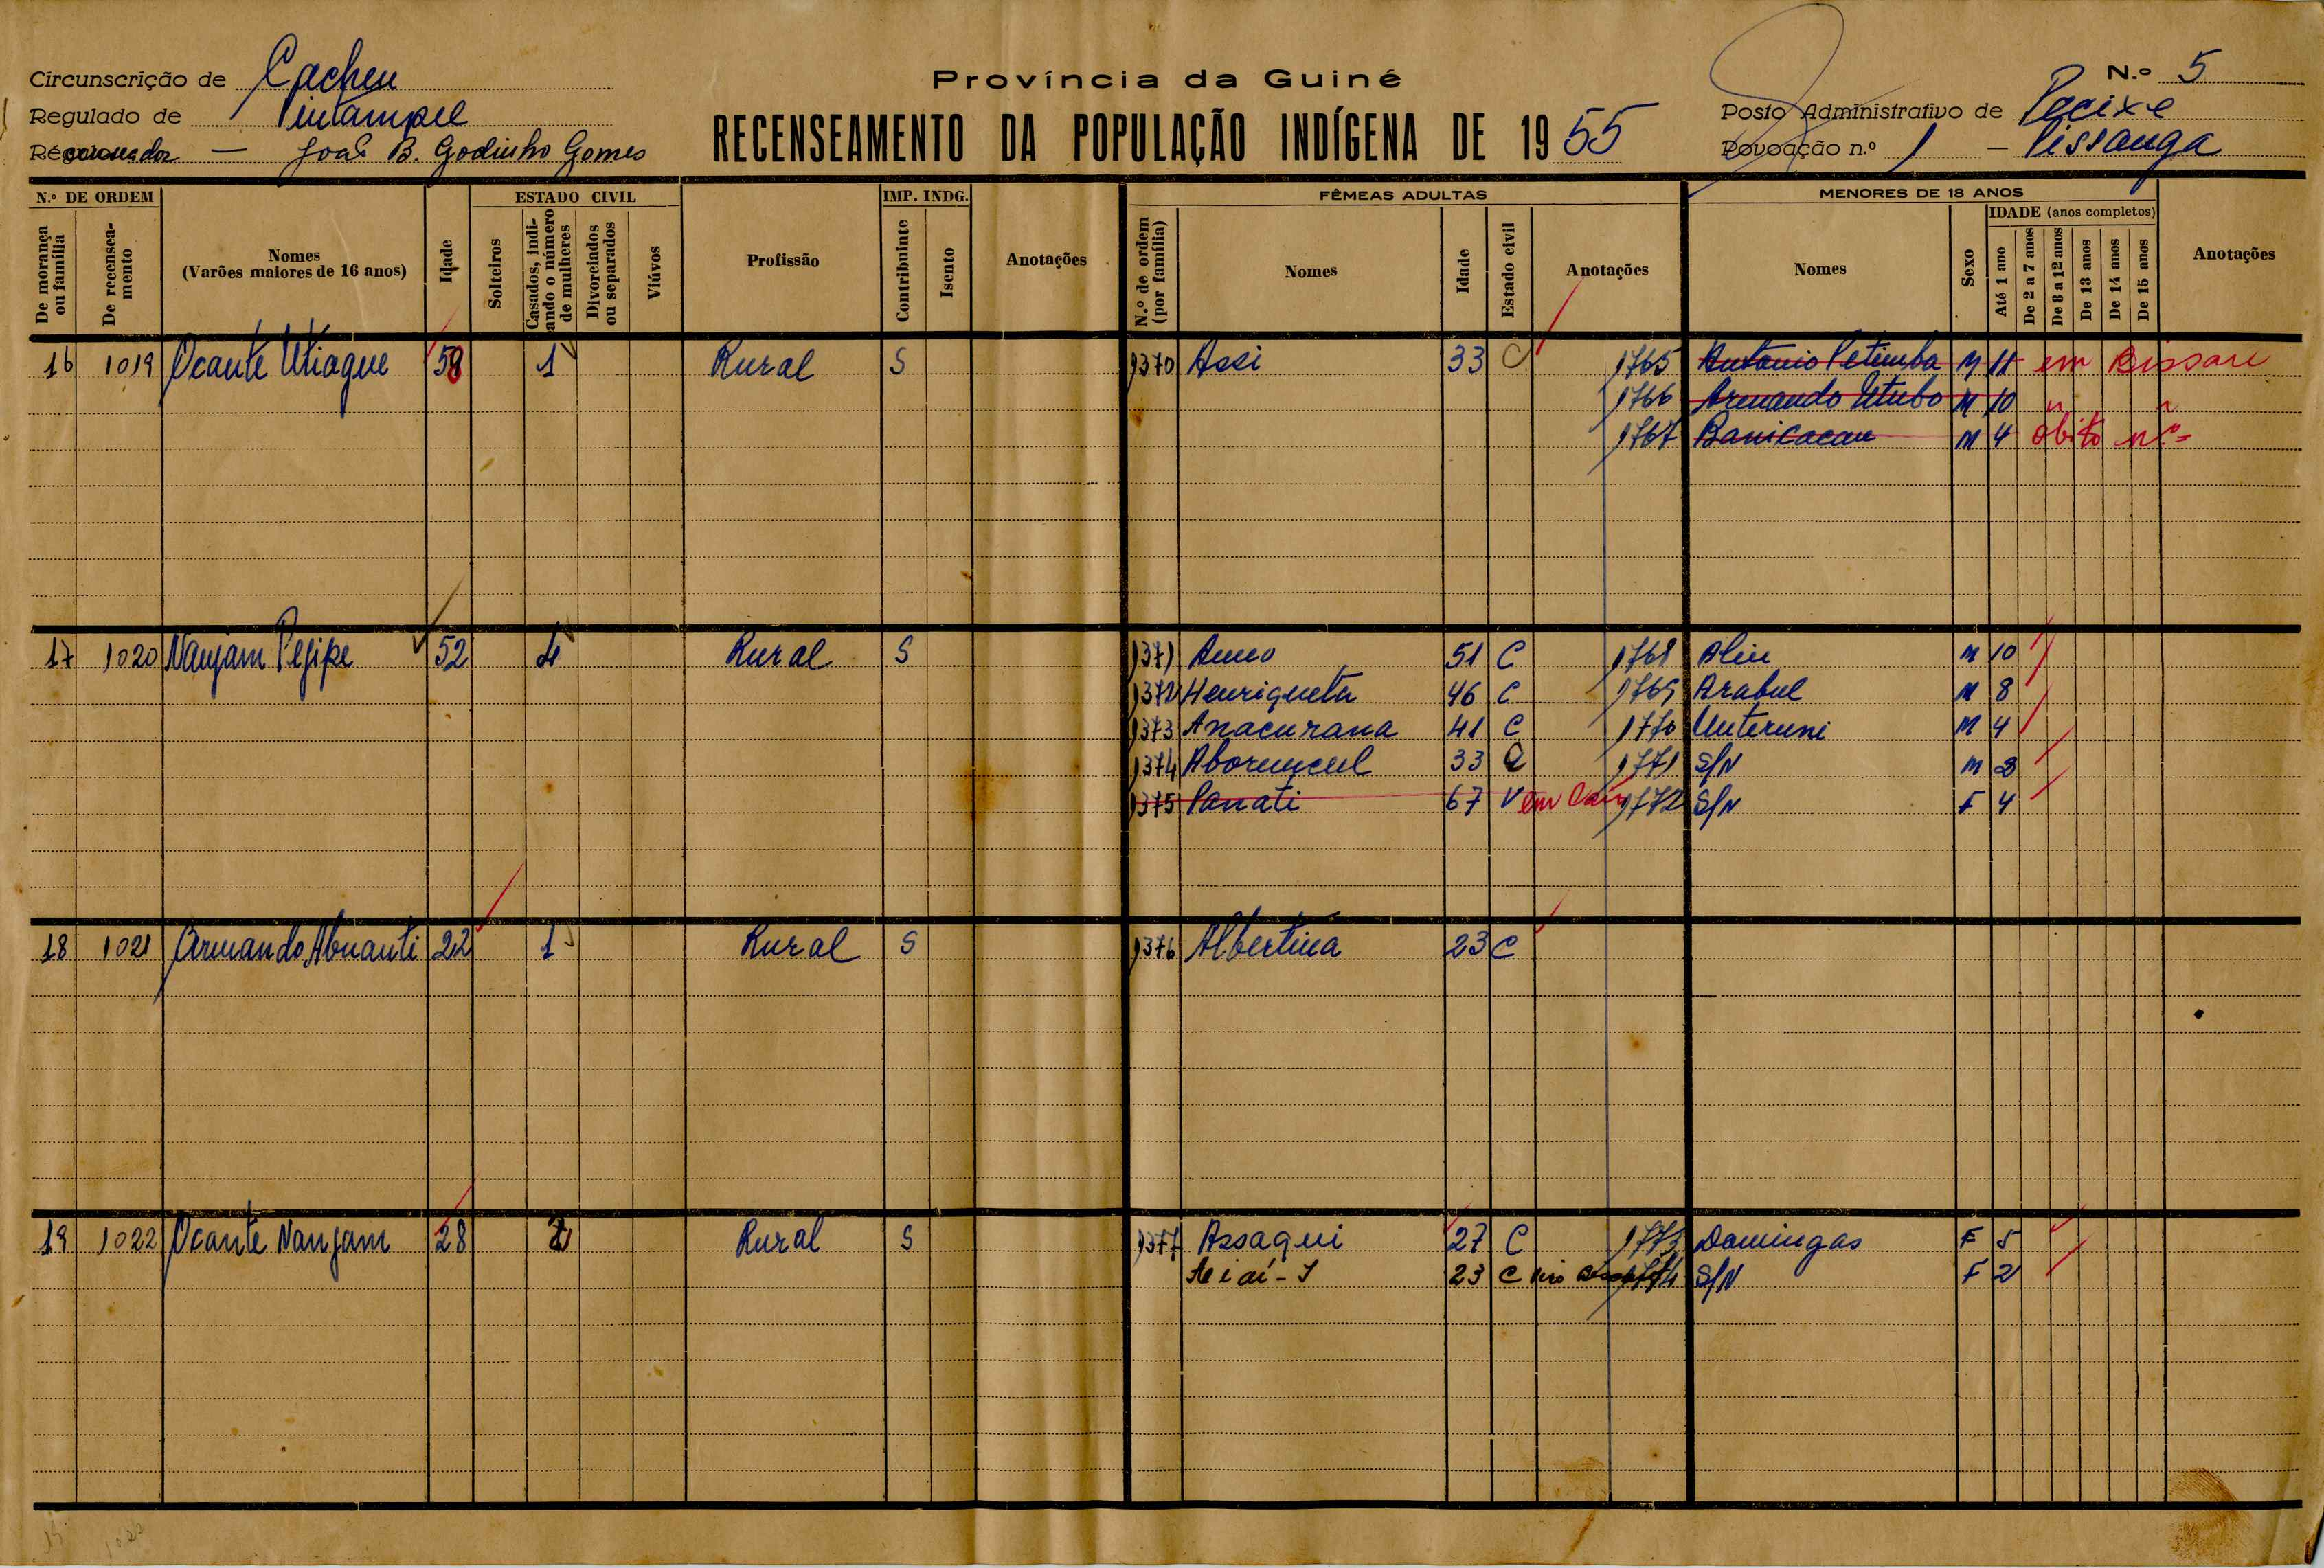 Província da Guiné
N.º 5
Circunscrição de Cacheu
Regulado de Pintampil
Recenseador — João B. Godinho Gomes
RECENSEAMENTO DA POPULAÇÃO INDÍGENA DE 1955
Posto Administrativo de Pecixe
Povoação n.º 1 — Pissanga
N.º DE ORDEM
De morança ou família
De recensea-mento
Nomes
(Varões maiores de 16 anos)
Idade
ESTADO CIVIL
Solteiros
Casados, indi-ando o número de mulheres
Divorciados ou separados
Viúvos
Profissão
IMP. INDG.
Contribuinte
Isento
Anotações
FÊMEAS ADULTAS
N.º de ordem (por família)
Nomes
Idade
Estado civil
Anotações
MENORES DE 18 ANOS
Nomes
Sexo
IDADE (anos completos)
Até 1 ano
De 2 a 7 anos
De 8 a 12 anos
De 13 anos
De 14 anos
De 15 anos
Anotações
16 1019 Ocante Utiaque 58 1 Rural S 1370 Assi 33 C 1765 António Petimba M 11 em Bissau
1766 Armando Utubo M 10 " "
1767 Banicacau M 4 obito nº =
17 1020 Nanjam Pejipe 52 4 Rural S 1371 51 C 1768 Aliu M 10
1372 Henriqueta 46 C 1769 Arabul M 8
1373 Anacurana 41 C 1770 Unteruni M 4
1374 33 C 1771 S/N M
1375 Panati 67 V em 1772 S/N F 4
18 1021 Armando Abnanti 22 1 Rural S 1376 Albertina 23 C
19 1022 Ocante Nanjam 28 2 Rural S 1377 Assaqui 27 C 1773 Domingas F 5
23 C 1774 S/N F 2